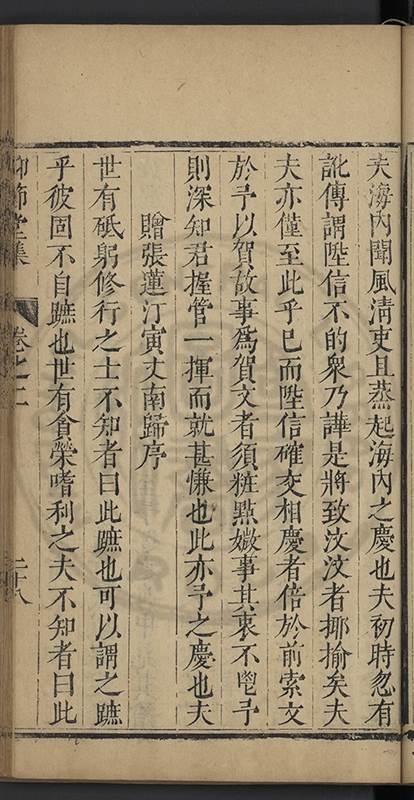 夫海内聞風清吏且蒸起海内之慶也夫初時忽有
訛傳謂陞信不的衆乃譁是將致汶汶者揶揄矣夫
夫亦僅至此乎已而陞信確交相慶者倍於前索文
於予以賀故事爲賀文者須粧㸃媺事其衷不鬯予
則深知君握管一揮而就甚慊也此亦予之慶也夫
贈張蓮汀寅丈南歸序
世有砥躬修行之士不知者曰此蹠也可以謂之蹠
乎彼固不自蹠也世有貪榮嗜利之夫不知者曰此
仰節堂集
卷之二
二十八